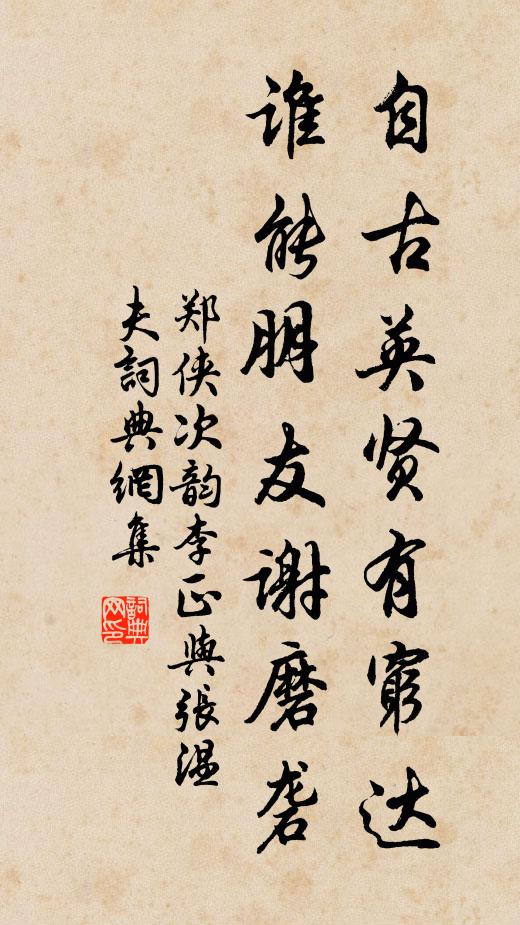 自古英贤有窮达
谁能朋友谢磨砻
郑侠次韵李正與張温
夫詞典網集
詞典
网印